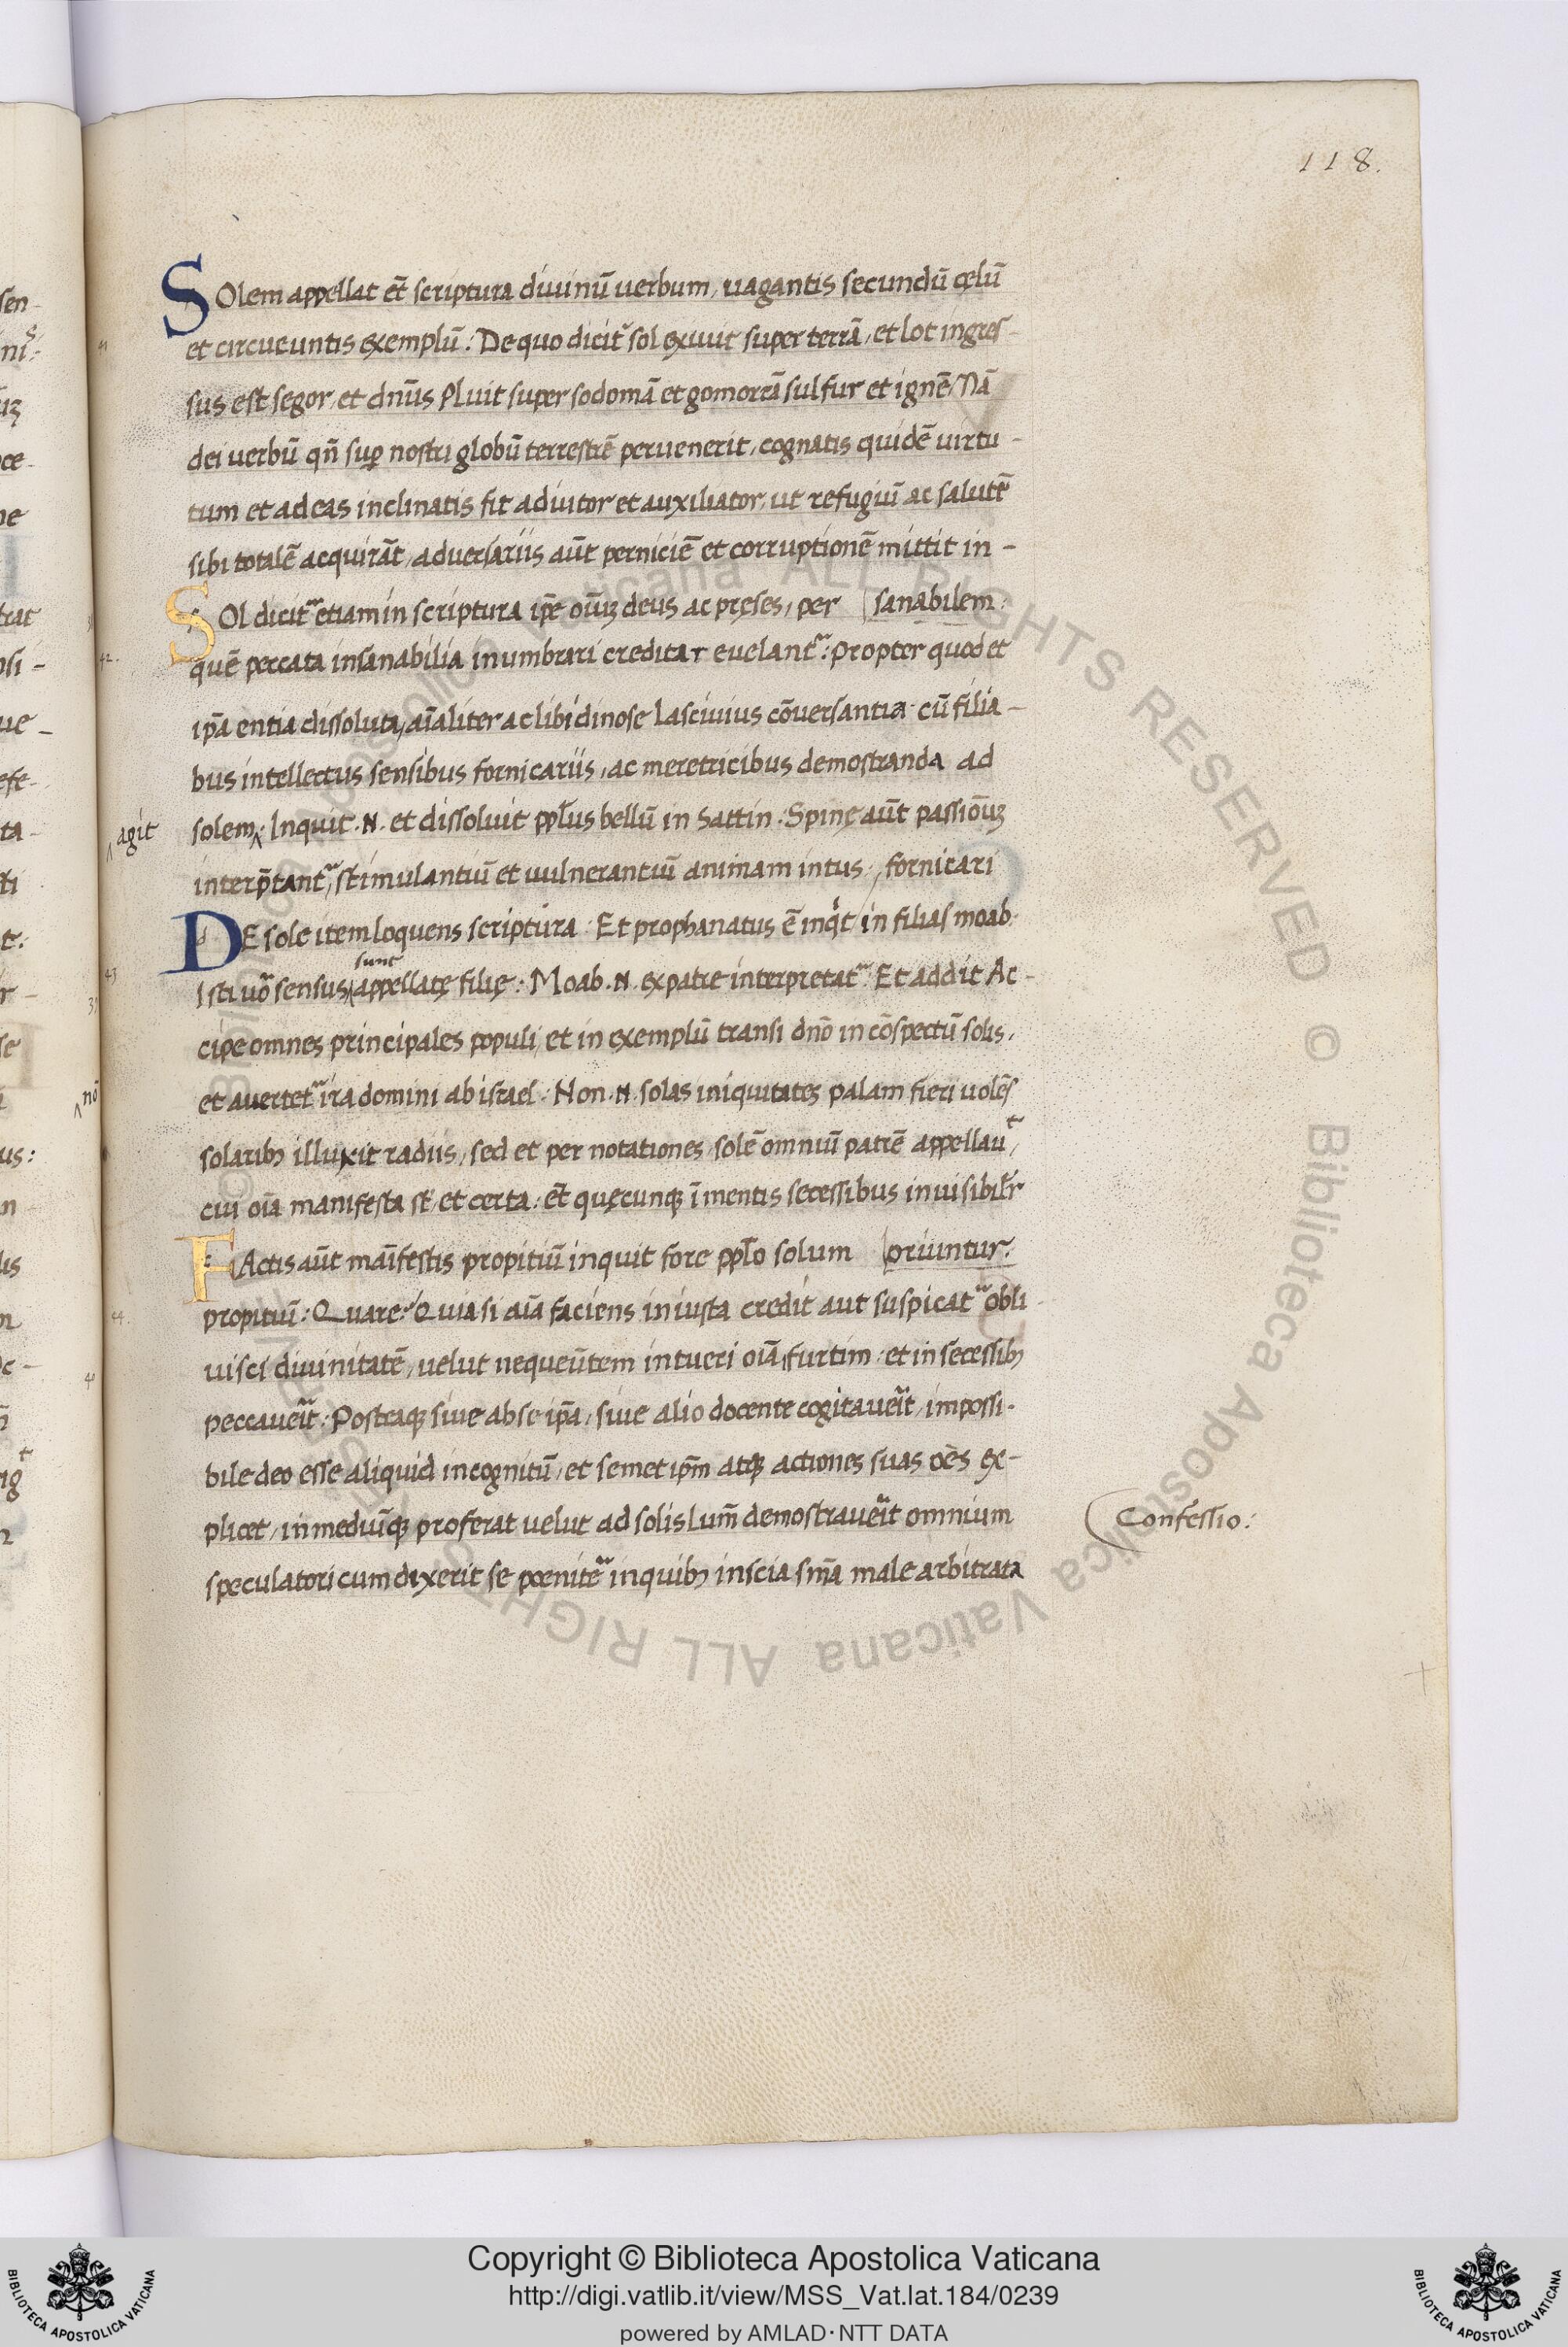 118.
SOlem appellat et̃ scriptura diuinũ uerbum, uagantis secundũ cęlũ
et circueuntis exemplũ: De quo dicit᷑ sol exiuit super terrã, et lot ingres-
sus est segor, et dñus pluit super sodomã et gomorrã sulfur et ignẽ, Nã
dei uerbũ qñ sup̱ nostri globũ terrestrẽ peruenerit, cognatis quidẽ uirtu-
tum et ad eas inclinatis fit adiutor et auxiliator, ut refugiũ ac salutẽ
sibi totalẽ acquirãt, aduersariis aũt perniciẽ et corruptionẽ mittit in-
SOl dicit᷑ etiam in scriptura ip̃e oĩuꝫ deus ac pręses, per sanabilem:
quẽ peccata insanabilia inumbrari credita reuelant᷑: Propter quod et
ip̃a entia dissoluta, aĩaliter ac libidinose lasciuius cõuersantia cũ filia-
bus intellectus sensibus fornicariis, ac meretricibus demostranda ad
agit
solem: Inquit .N. et dissoluit ppl̃us bellũ in Sattin. Spinę aũt passioũꝫ
interp̃tant᷑, stimulantiũ et uulnerantiũ animam intus: fornicari
DE sole item loquens scriptura. Et prophanatus ẽ inq̇t, in filias moab.
sunt
Isti uõ sensus appellatę filię: Moab .N. ex patre interpretat᷑. Et addit Ac-
cipe omnes principales populi, et in exemplũ transi dño in cõspectũ solis,
et auertet᷑ ira domini ab israel: Non .N. solas iniquitates palam fieri uolẽs
nõ
solarib₉ illuxit radiis, sed et per notationes solẽ omniũ patrẽ appellauᵗ,
cui oĩa manifesta st̃ et certa: et̃ quęcunqꝫ ĩ mentis secessibus inuisibilr̃
FActis aũt maĩfestis propitiũ inquit fore ppl̃o solum oriuntur:
propitiũ: Quare? Quia si aĩa faciens iniusta credit aut suspicat᷑ obli-
uisci diuinitatẽ, uelut nequeũtem intueri oĩa, furtim et in secessib₉
peccauer̃it: Posteaqꝫ siue ab se ip̃a, siue alio docente cogitauer̃it, impossi-
bile deo esse aliquid incognitũ, et semet ip̃m atqꝫ actiones suas oẽs ex-
plicet, in mediũqꝫ proferat uelut ad solis lum̃ demostrauer̃it omnium
Confessio:
speculatori cum dixerit se poenitẽ inquib₉ inscia sm̃a male arbitrata
Copyright © Biblioteca Apostolica Vaticana
http://digi.vatlib.it/view/MSS_Vat.lat.184/0239
powered by AMLAD·NTT DATA